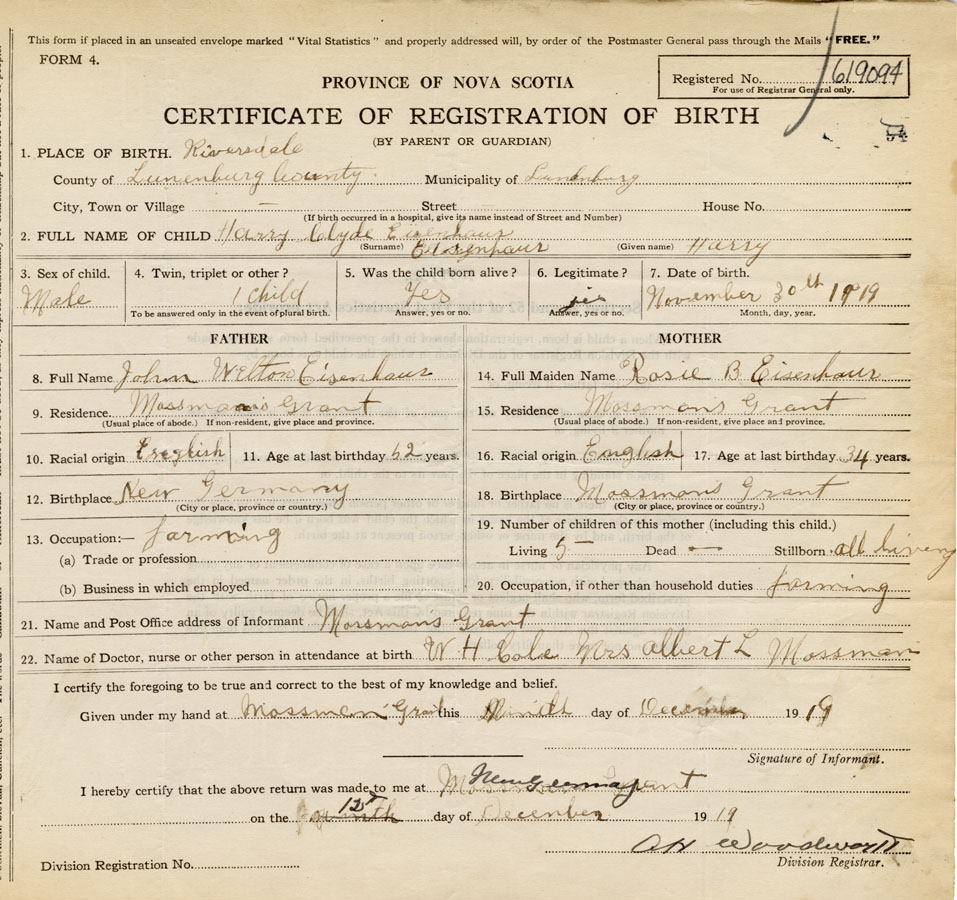 This form if placed in an unsealed envelope marked "Vital Statistics" and properly addressed will, by order of the Postmaster General pass through the Mails "FREE."
FORM 4.
Registered No. 619094
For use of Registrar General only.
PROVINCE OF NOVA SCOTIA
CERTIFICATE OF REGISTRATION OF BIRTH
(BY PARENT OR GUARDIAN)
54
1. PLACE OF BIRTH. Riversdale
County of Lunenburg County. Municipality of Lunenburg
City, Town or Village — Street House No.
(If birth occurred in a hospital, give its name instead of Street and Number)
2. FULL NAME OF CHILD Harry Clyde Eisenhaur
(Surname) Eisenhaur (Given name) Harry
3. Sex of child. 4. Twin, triplet or other? 5. Was the child born alive? 6. Legitimate? 7. Date of birth.
Male 1 Child Yes yes November 30th 1919
To be answered only in the event of plural birth. Answer, yes or no. Answer, yes or no. Month, day, year.
FATHER MOTHER
8. Full Name John Welton Eisenhaur 14. Full Maiden Name Rosie B Eisenhaur
9. Residence. Mossman's Grant 15. Residence Mossman's Grant
(Usual place of abode.) If non-resident, give place and province. (Usual place of abode.) If non-resident, give place and province.
10. Racial origin English 11. Age at last birthday 52 years. 16. Racial origin English 17. Age at last birthday 34 years.
12. Birthplace New Germany 18. Birthplace Mossman's Grant
(City or place, province or country.) (City or place, province or country.)
13. Occupation:— farming 19. Number of children of this mother (including this child.)
(a) Trade or profession Living 5 — Dead — Stillborn all living
(b) Business in which employed 20. Occupation, if other than household duties farming
21. Name and Post Office address of Informant Mossman's Grant
22. Name of Doctor, nurse or other person in attendance at birth W H Cole Mrs Albert L Mossman
I certify the foregoing to be true and correct to the best of my knowledge and belief.
Given under my hand at Mossman Grant this Ninth day of December 1919
Signature of Informant.
I hereby certify that the above return was made to me at Mossman Grant New Germany
on the 12th day of December 1919
Woodworth
Division Registration No. Division Registrar.